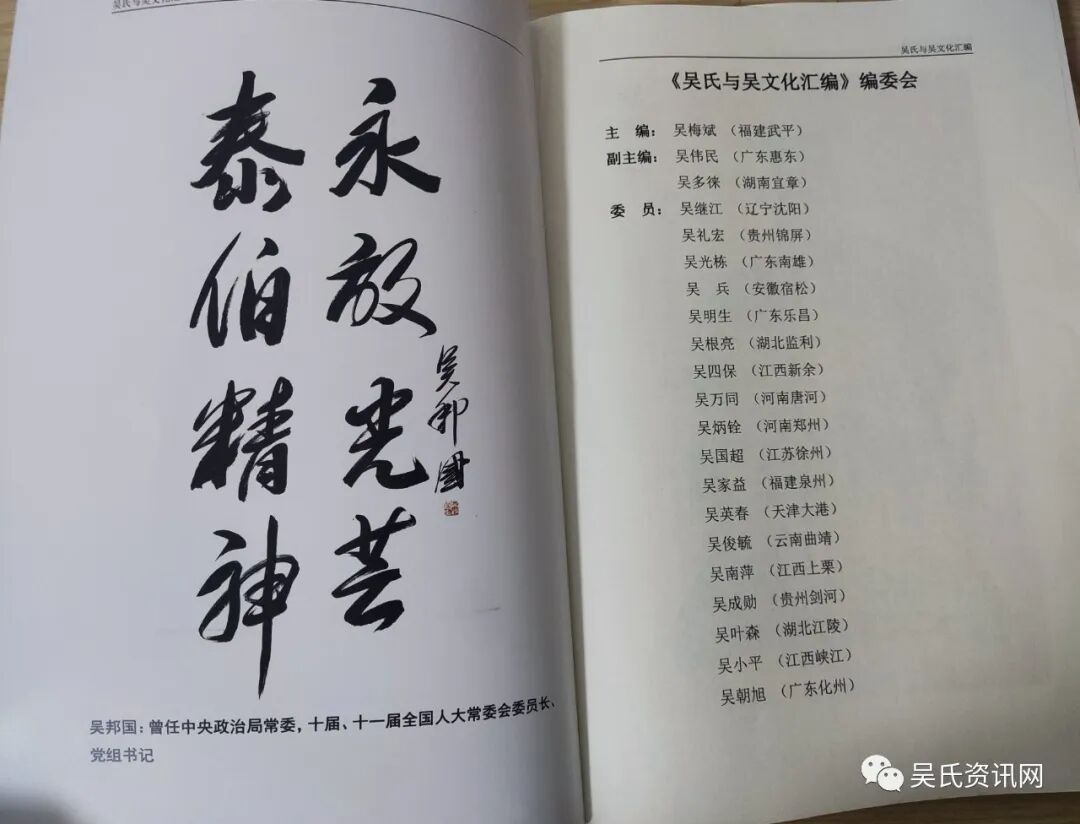 吴氏与吴文化汇
泰伯精神
永放光芒
吴邦国
吴邦国：曾任中央政治局常委，十届、十一届全国人大常委会委员长、
党组书记
吴氏与吴文化汇编
《吴氏与吴文化汇编》编委会
主 编： 吴梅斌 （福建武平）
副主编： 吴伟民 （广东惠东）
吴多徕 （湖南宜章）
委 员： 吴继江 （辽宁沈阳）
吴礼宏 （贵州锦屏）
吴光栋 （广东南雄）
吴 兵 （安徽宿松）
吴明生 （广东乐昌）
吴根亮 （湖北监利）
吴四保 （江西新余）
吴万同 （河南唐河）
吴炳铨 （河南郑州）
吴国超 （江苏徐州）
吴家益 （福建泉州）
吴英春 （天津大港）
吴俊毓 （云南曲靖）
吴南萍 （江西上栗）
吴成勋 （贵州剑河）
吴叶森 （湖北江陵）
吴小平 （江西峡江）
吴朝旭 （广东化州）
吴氏资讯网